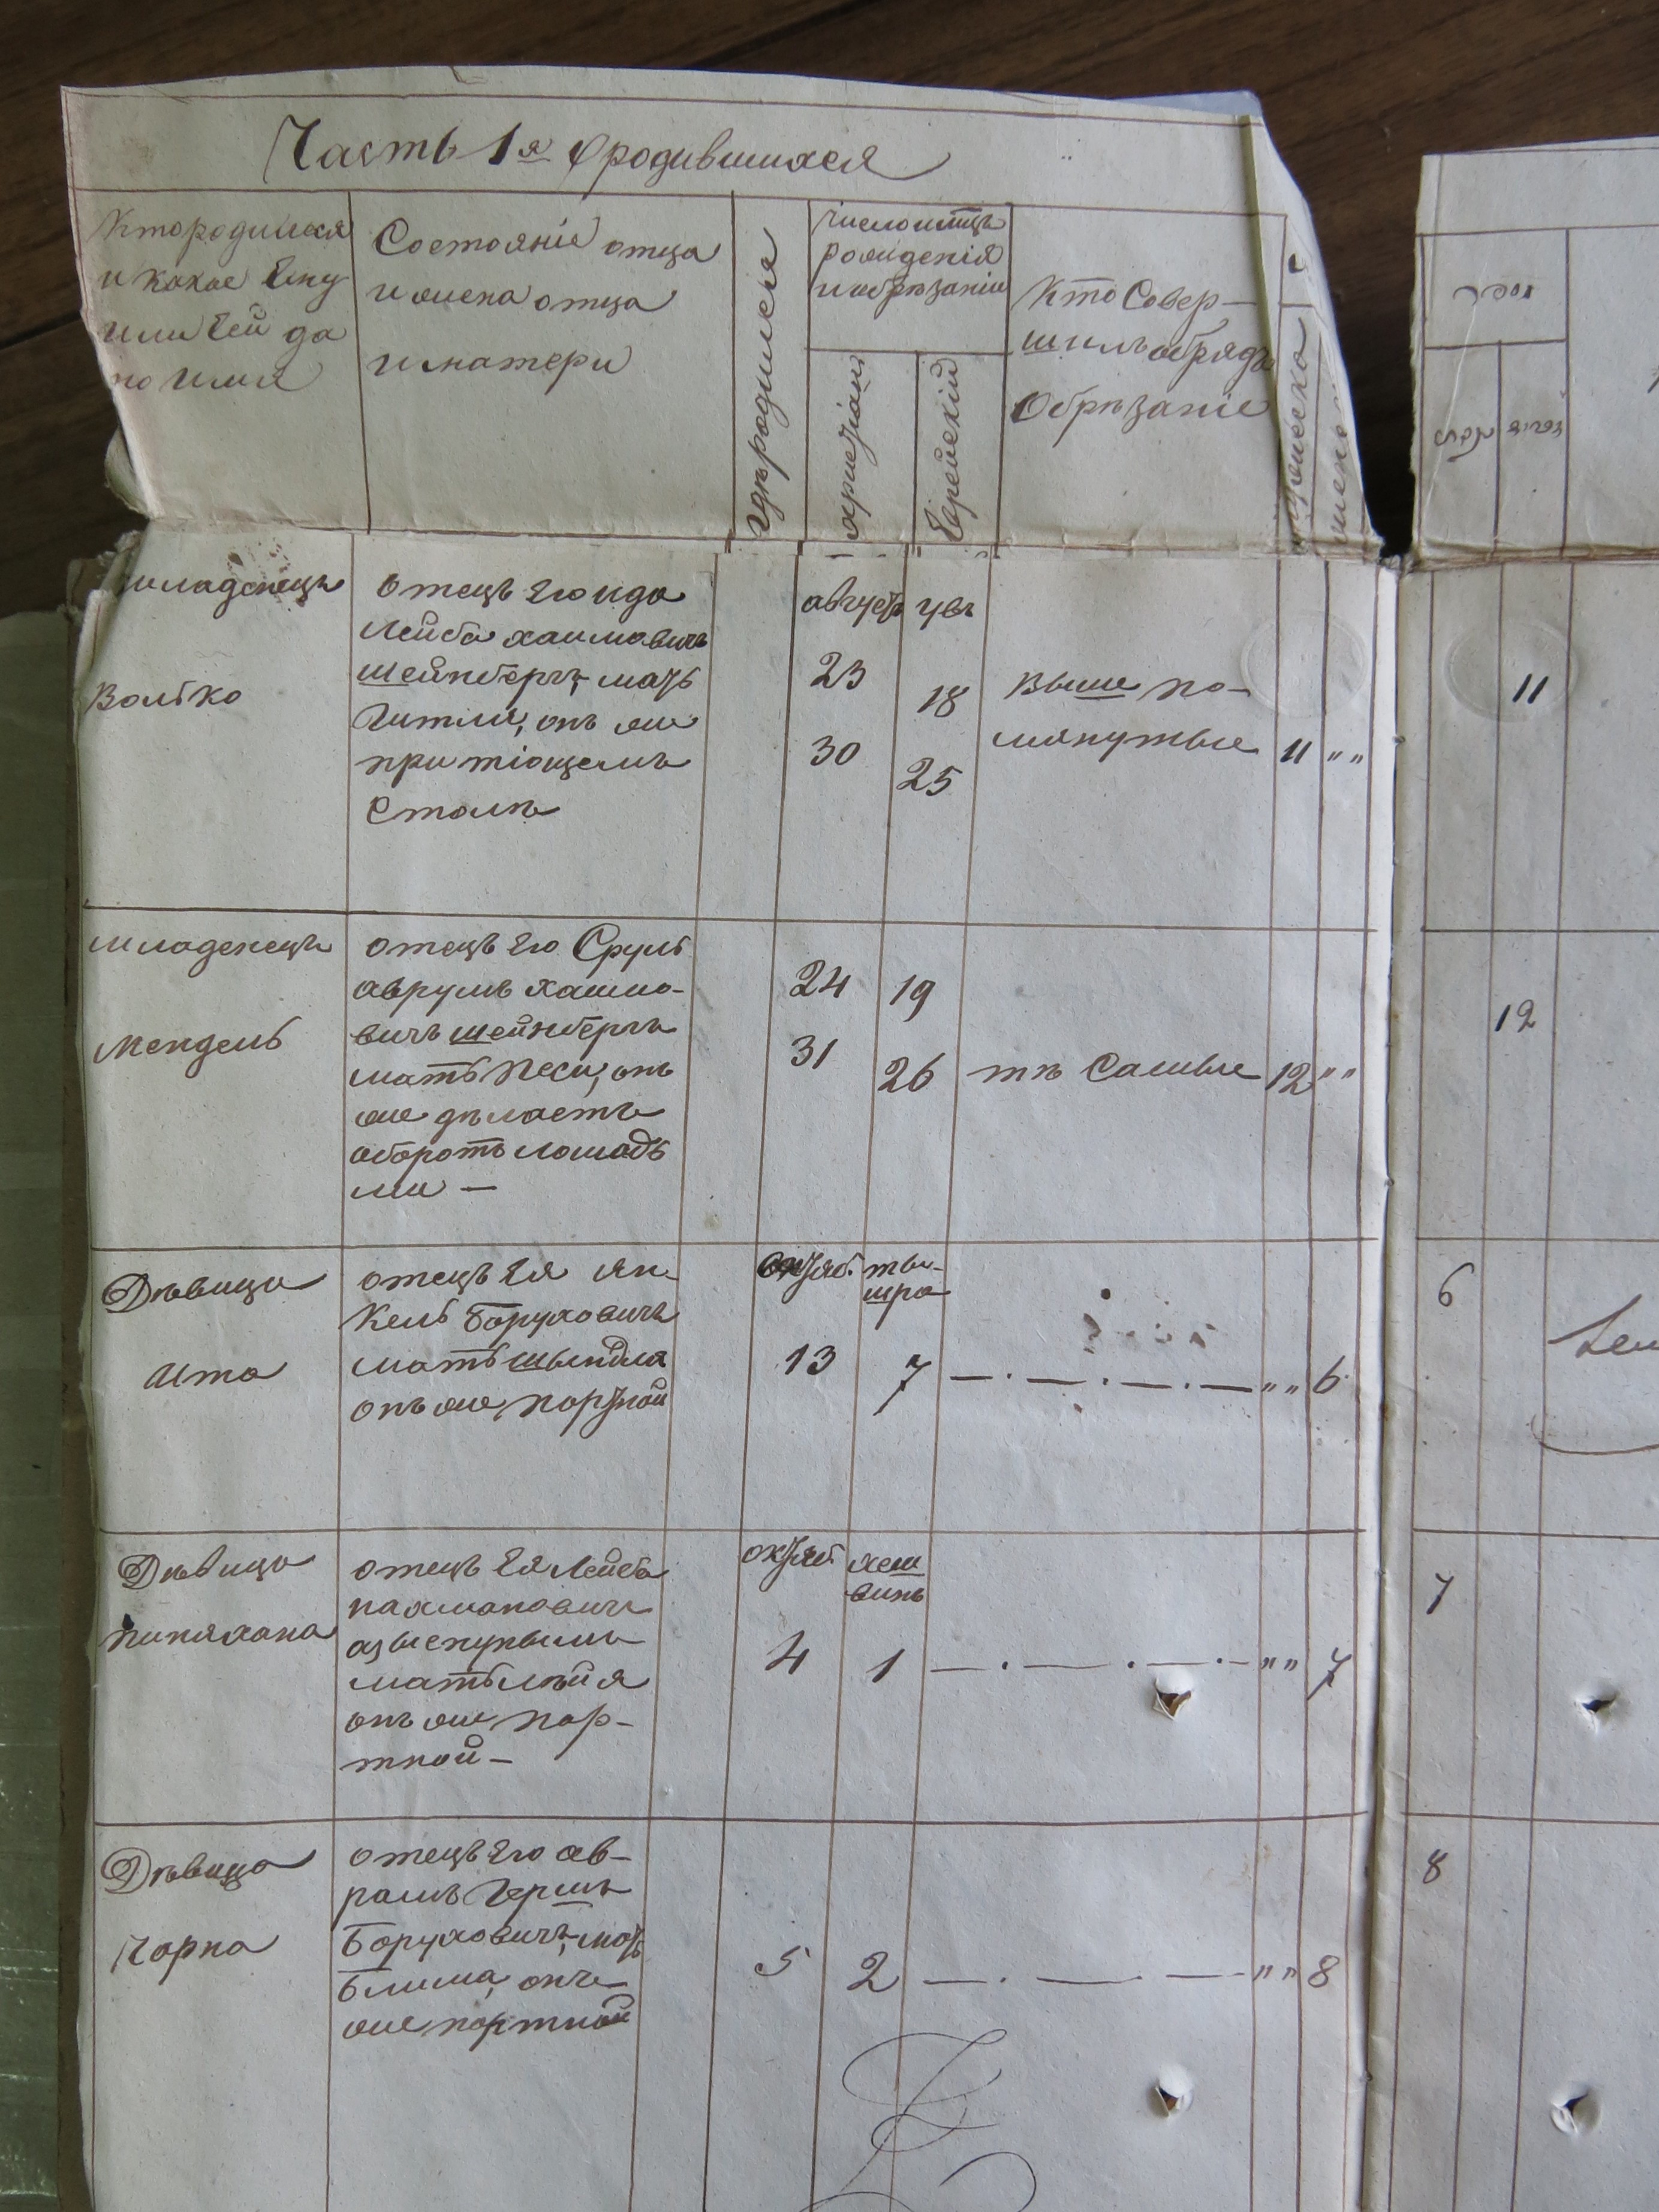 Часть 1я о родившихся
Кто родился
и какое Ему
или Ей да
но имя
Состояніе отца
и имена отца
и матери
гдѣ родился
Число и мѣсяцъ
рожденія
и обрѣзанія
христіан
Еврейскій
Кто Совер-
шилъ обрядъ
Обрѣзаніе
младенецъ
Волько
отецъ Его ида
Лейба хаимовичъ
шейнбергъ, мать
Гитля, онъ же
при
столѣ
августъ
23
30
18
25
Выше по-
мянутые
11
" "
младенецъ
Мендель
отецъ Его Сруль
аврумъ хаимо-
вичъ шейнбергъ
мать Песи, онъ
же дѣлаетъ
оборотъ лошадь
ми —
24
31
19
26
тѣ Самые
12
" "
Дѣвица
Ита
отецъ Ея Ян-
кель Боруховичъ
мать шындля
онъ же портной
октяб.
13
ты-
шра
7
— . — . — . —
" "
6
Дѣвица
отецъ Ея Лейба
нахмановичъ
мать
онъ же пор-
тной —
октяб.
4
хеш
винъ
1
— . — . — . —
" "
7
Дѣвица
Чарна
отецъ Его ав-
рамъ Гершъ
Боруховичъ, мать
Блима, онъ
же портной
5
2
— . — . —
" "
8
11
12
6
7
8